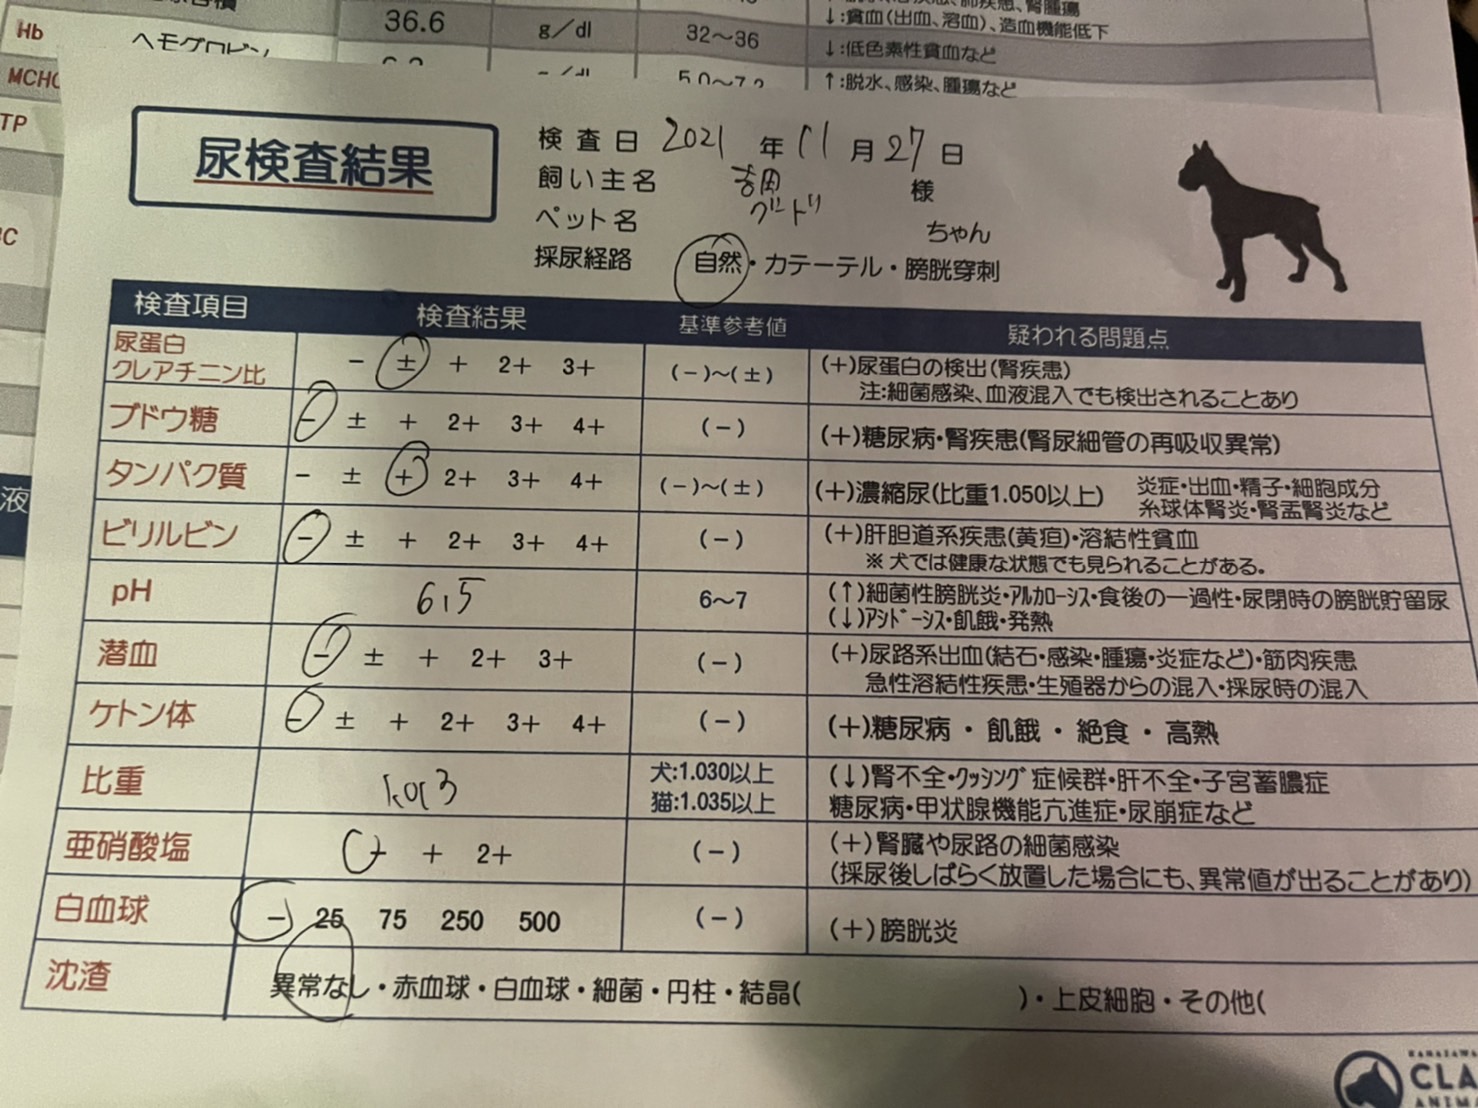 36.6 g/dl 32〜36
↓:貧血(出血、溶血)、造血機能低下
Hb ヘモグロビン
↓:低色素性貧血など
MCHC
↑:脱水、感染、腫瘍など
TP
尿検査結果
検査日 2021 年 11 月 27 日
飼い主名 様
ペット名 ちゃん
採尿経路 自然・カテーテル・膀胱穿刺
検査項目 検査結果 基準参考値 疑われる問題点
尿蛋白
クレアチニン比 − ± + 2+ 3+ (−)〜(±) (+)尿蛋白の検出(腎疾患)
注:細菌感染、血液混入でも検出されることあり
ブドウ糖 − ± + 2+ 3+ 4+ (−) (+)糖尿病・腎疾患(腎尿細管の再吸収異常)
タンパク質 − ± + 2+ 3+ 4+ (−)〜(±) (+)濃縮尿(比重1.050以上) 炎症・出血・精子・細胞成分
糸球体腎炎・腎盂腎炎など
ビリルビン − ± + 2+ 3+ 4+ (−) (+)肝胆道系疾患(黄疸)・溶結性貧血
※ 犬では健康な状態でも見られることがある。
pH 6.5 6〜7 (↑)細菌性膀胱炎・アルカローシス・食後の一過性・尿閉時の膀胱貯留尿
(↓)アシドーシス・飢餓・発熱
潜血 − ± + 2+ 3+ (−) (+)尿路系出血(結石・感染・腫瘍・炎症など)・筋肉疾患
急性溶結性疾患・生殖器からの混入・採尿時の混入
ケトン体 − ± + 2+ 3+ 4+ (−) (+)糖尿病 ・ 飢餓 ・ 絶食 ・ 高熱
比重 1.013 犬:1.030以上 (↓)腎不全・クッシング症候群・肝不全・子宮蓄膿症
猫:1.035以上 糖尿病・甲状腺機能亢進症・尿崩症など
亜硝酸塩 − + 2+ (−) (+)腎臓や尿路の細菌感染
(採尿後しばらく放置した場合にも、異常値が出ることがあり)
白血球 − 25 75 250 500 (−) (+)膀胱炎
沈渣 異常なし・赤血球・白血球・細菌・円柱・結晶( )・上皮細胞・その他(
CLA